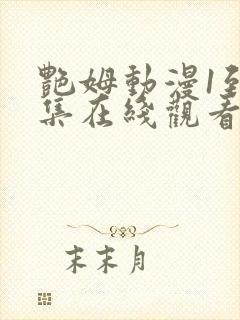 艷姆動漫1至
集在綫觀看
末末月